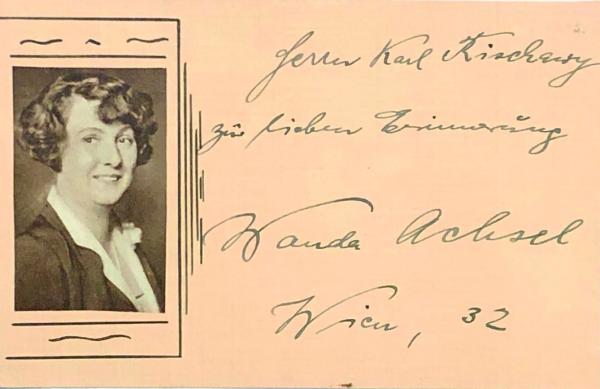 Herrn Karl Rischawy
zur lieben Erinnerung
Wanda Achsel
Wien, 32